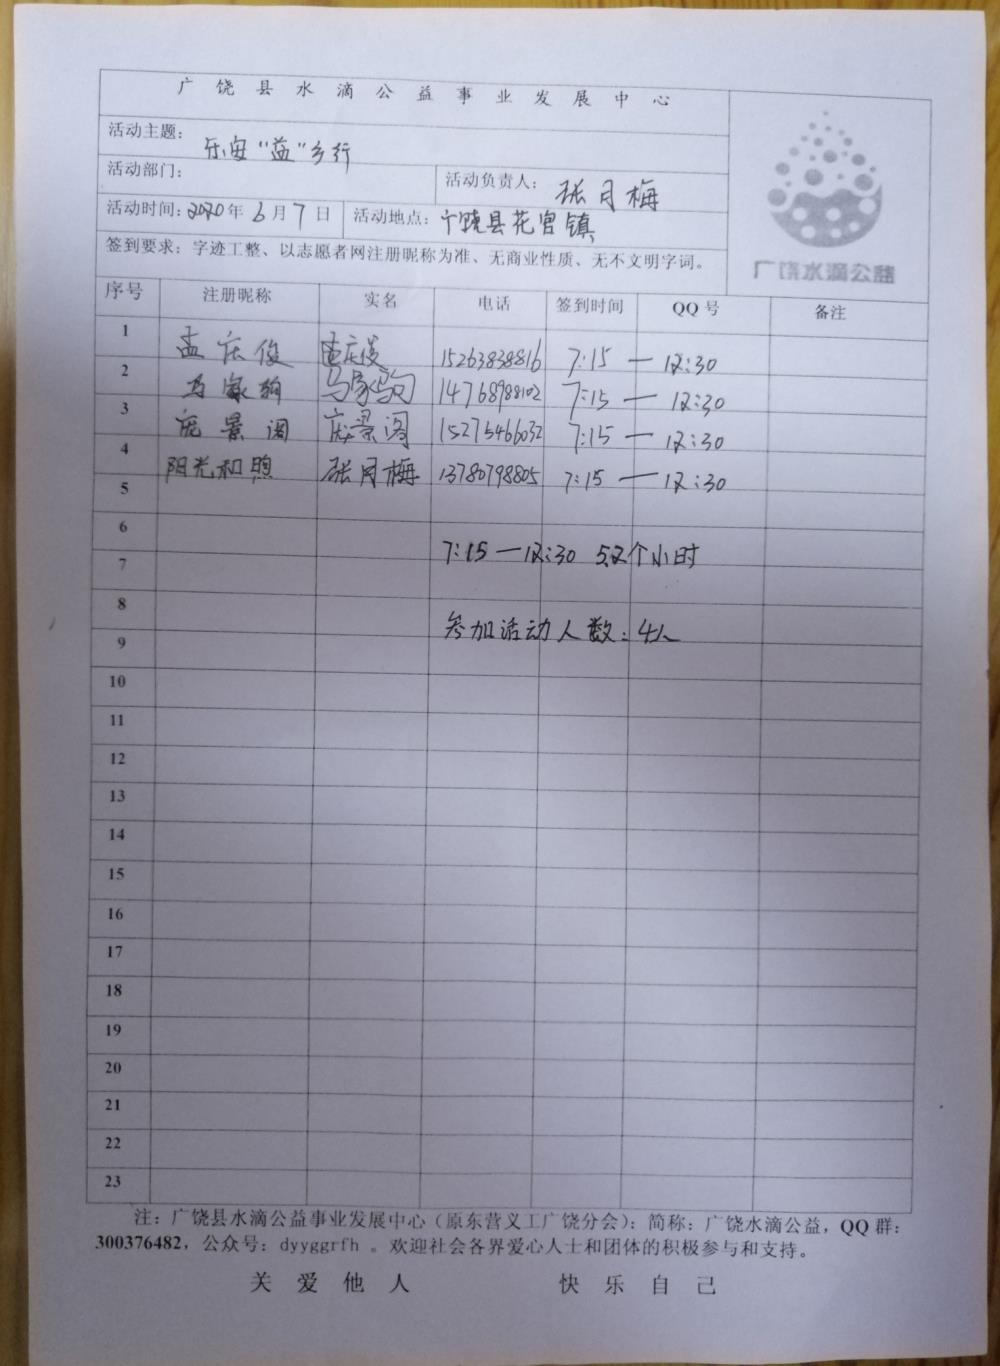 广饶县水滴公益事业发展中心
活动主题：乐安“益”乡行
活动部门：
活动负责人：张月梅
活动时间：2020年6月7日 活动地点：广饶县花官镇
签到要求：字迹工整、以志愿者网注册昵称为准、无商业性质、无不文明字词。
广饶水滴公益
序号 注册昵称 实名 电话 签到时间 QQ号 备注
1 孟庆俊 孟庆俊 15263838816 7:15 — 12:30
2 马家驹 马家驹 14768988102 7:15 — 12:30
3 庞景阁 庞景阁 15275466032 7:15 — 12:30
4 阳光和煦 张月梅 13780798805 7:15 — 12:30
5
6
7:15 — 12:30 5.2个小时
7
8
参加活动人数：4人
9
10
11
12
13
14
15
16
17
18
19
20
21
22
23
注：广饶县水滴公益事业发展中心（原东营义工广饶分会）：简称：广饶水滴公益，QQ群：
300376482，公众号：dyyggrfh 。欢迎社会各界爱心人士和团体的积极参与和支持。
关爱他人 快乐自己